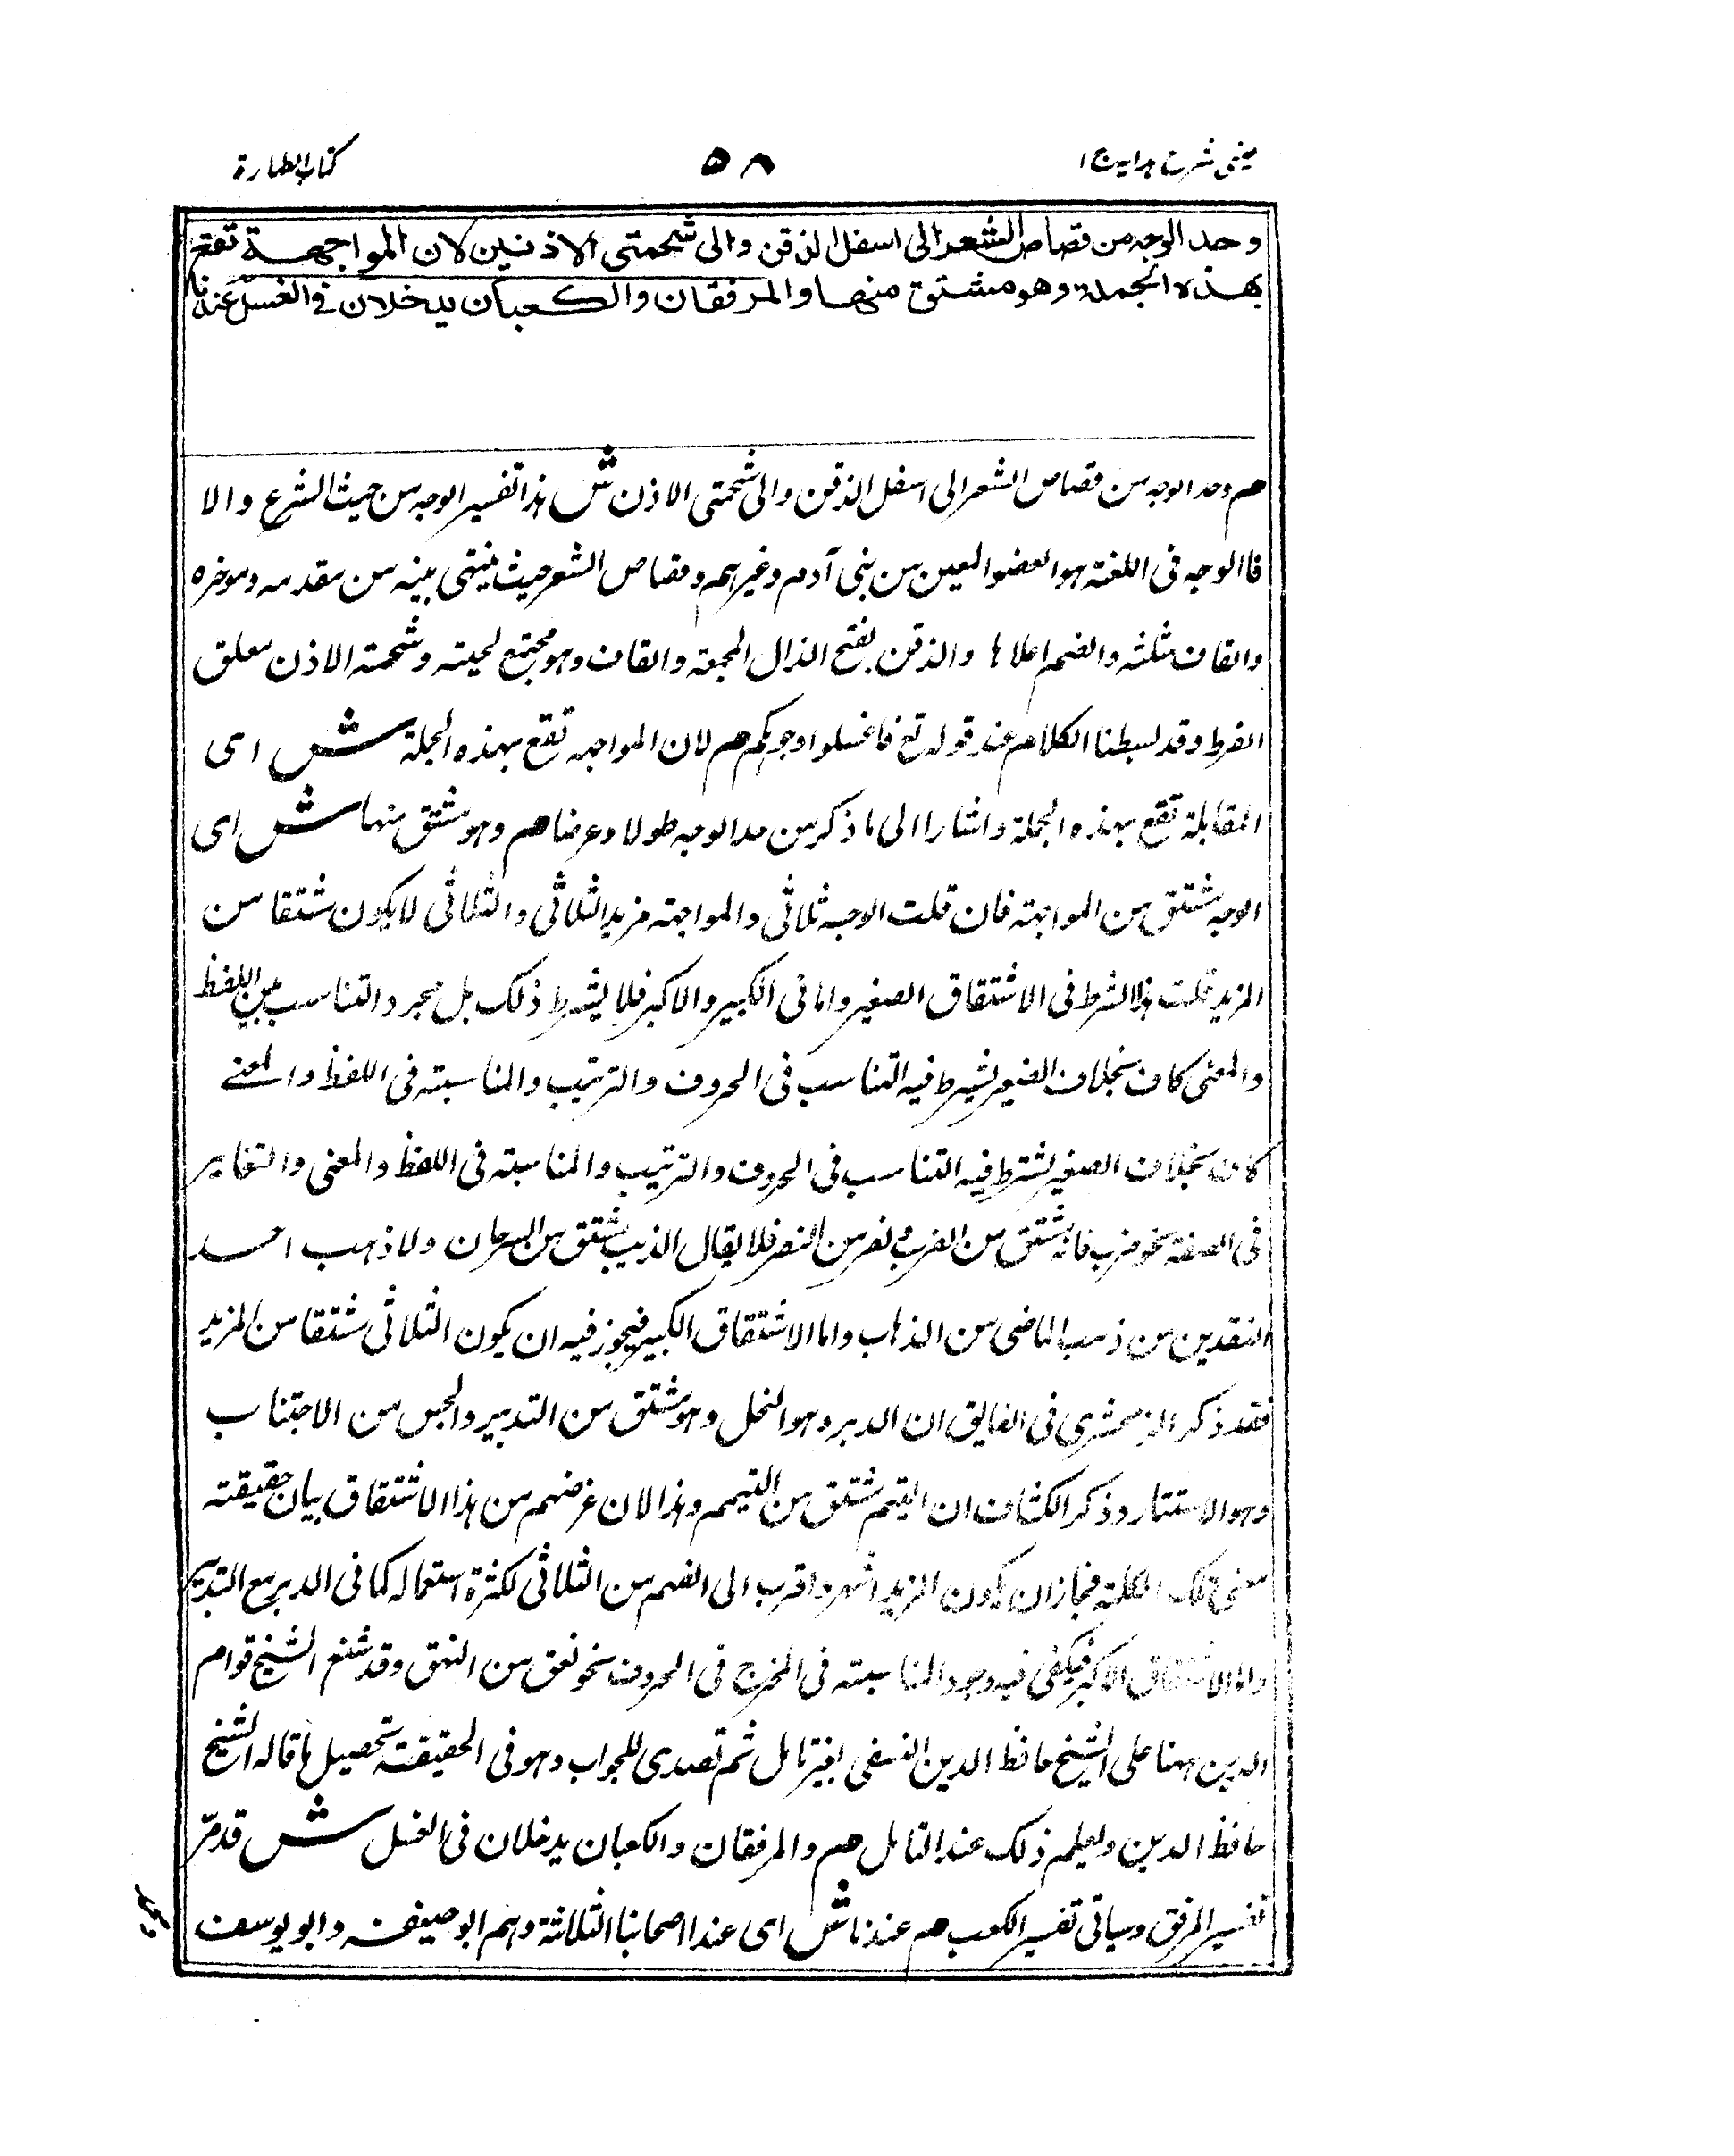 عینی شرح ہدایہ ج ۱
۵۸
کتاب الطہارۃ
وحد الوجه من قصاص الشعر الى اسفل الذقن والى شحمتى الاذنين لان المواجهة تقع
بهذه الجملة وهو مشتق منها والمرفقان والكعبان يدخلان فى الغسل عندنا
م وحد الوجه من قصاص الشعر الى اسفل الذقن والى شحمتى الاذن ش هذا تفسير الوجه من حيث الشرع والا
فالوجه فى اللغة هو العضو المعين من بنى آدم وغيرهم وقصاص الشعر حيث ينتهى بينه من مقدمه وموخره
والقاف مثلثه والضم اعلاها والذقن بفتح الذال المعجمة والقاف وهو مجتمع لحيته وشحمة الاذن معلق
القرط وقد بسطنا الكلام عند قوله تع فاغسلوا وجوهكم م لان المواجهه تقع بهذه الجملة ش اى
المقابلة تقع بهذه الجملة واشارا الى ما ذكر من حد الوجه طولا وعرضا م وهو مشتق منها ش اى
الوجه مشتق من المواجهة فان قلت الوجه ثلاثى والمواجهة مزيد الثلاثى والثلاثى لا يكون مشتقا من
المزيد قلت هذا الشرط فى الاشتقاق الصغير واما فى الكبير والاكبر فلا يشترط ذلك بل مجرد التناسب بين اللفظ
والمعنى كاف بخلاف الصغير يشترط فيه التناسب فى الحروف والترتيب والمناسبة فى اللفظ والمعنے
كاف بخلاف الصغير يشترط فيه التناسب فى الحروف والترتيب والمناسبة فى اللفظ والمعنى والتغاير
فى الصفة نحو ضرب فانه مشتق من الضرب ونصر من النصر فلا يقال الذيب مشتق من السرحان ولا ذهب احد
المتقدمين من ذهب الماضى من الذهاب واما الاشتقاق الكبير فيجوز فيه ان يكون الثلاثى مشتقا من المزيد
فقد ذكر الزمخشرى فى الفايق ان الدبر وهو النحل وهو مشتق من التدبير والجن من الاجتناب
وهو الاستتار وذكر الكشاف ان اليم مشتق من التيمم وهذا لان غرضهم من هذا الاشتقاق بيان حقيقته
معنى تلك الكلمة فجاز ان يكون المزيد اشهر واقرب الى الفهم من الثلاثى لكثرة استعماله كما فى الدبر مع التدبير
واما الاشتقاق الاكبر فيكفى فيه وجود المناسبته فى المخرج فى الحروف نحو نعق من النهق وقد شنع الشيخ قوام
الدين ههنا على الشيخ حافظ الدين النسفى بغير تامل ثم تصدى للجواب وهو فى الحقيقة تحصيل ما قاله الشيخ
حافظ الدين وليعلم ذلك عند التامل م والمرفقان والكعبان يدخلان فى الغسل ش قد مرّ
تفسير المرفق وسياتى تفسير الكعب م عندنا ش اى عند اصحابنا الثلاثة وهم ابو حنيفه وابو يوسف